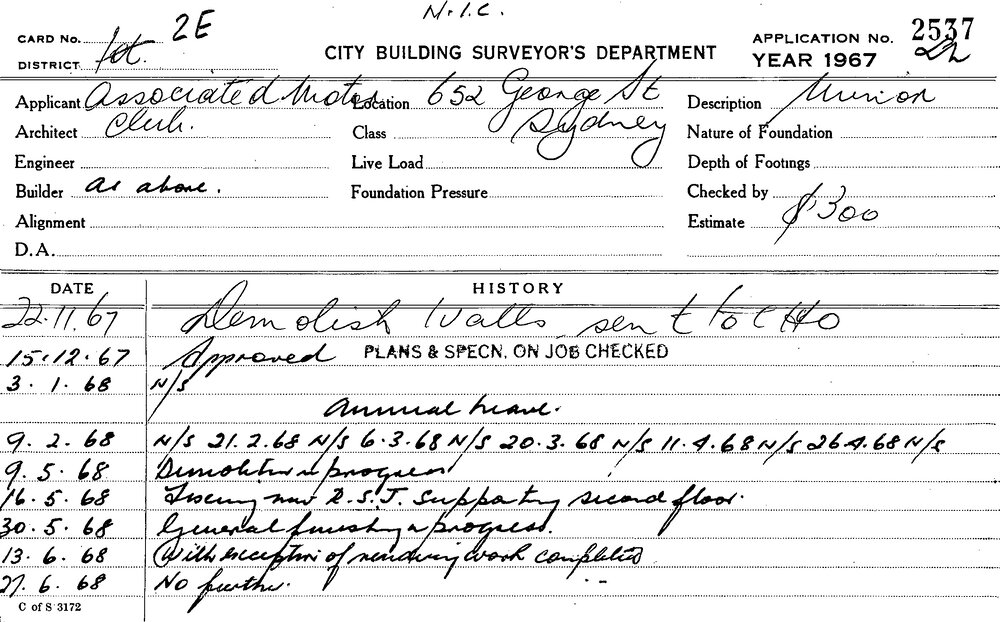 N.I.C.
CARD No. 2E
DISTRICT
CITY BUILDING SURVEYOR'S DEPARTMENT
APPLICATION No. 2537
22
YEAR 1967
Applicant Associated Motor Location 652 George St Description Minor
Architect Club. Class Sydney Nature of Foundation
Engineer Live Load Depth of Footings
Builder As above. Foundation Pressure Checked by
Alignment Estimate $300
D.A.
DATE HISTORY
22.11.67 Demolish Walls sent to CHO
15.12.67 Approved PLANS & SPECN. ON JOB CHECKED
3.1.68 N/S
Annual Leave.
9.2.68 N/S 21.2.68 N/S 6.3.68 N/S 20.3.68 N/S 11.4.68 N/S 26.4.68 N/S
9.5.68 Demolition in progress
16.5.68 new R.S.J. supporting second floor.
30.5.68 General finishing in progress.
13.6.68 With exception of rendering work completed
27.6.68 No further.
C of S 3172